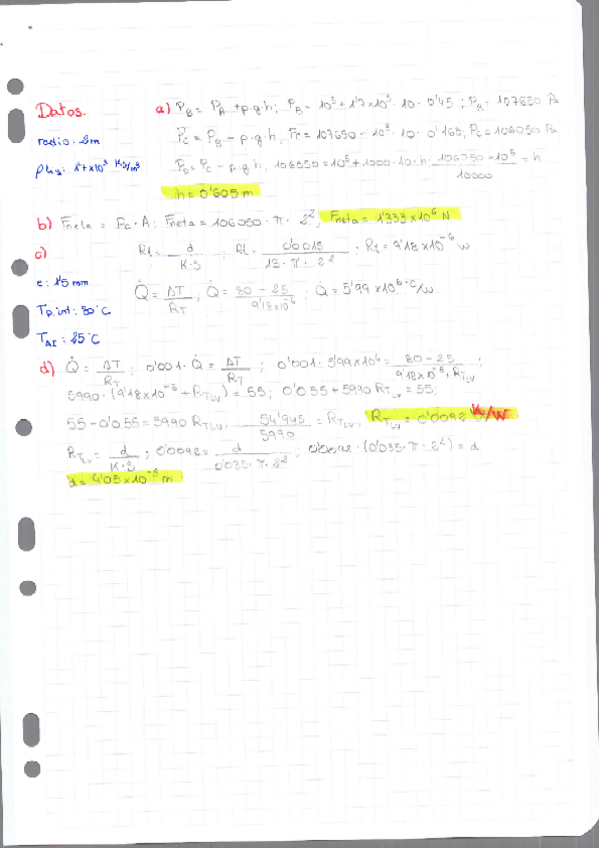 Datos.
radio: 2m
ρliq: 1'7x10³ Kg/m³
a) P_B = P_A + ρ·g·h; P_B = 10⁵ + 1'7x10³ · 10 · 0'45; P_B = 107650 Pa
P_C = P_B - ρ·g·h; P_C = 107650 - 10³ · 10 · 0'165; P_C = 106050 Pa
P_D = P_C - ρ·g·h; 106050 = 10⁵ + 1000 · 10 · h; (106050 - 10⁵)/10000 = h
h = 0'605 m
b) Fneta = P_C · A; Fneta = 106050 · π · 2²; Fneta = 1'333x10⁶ N
c)
e: 1'5 mm
T p.int: 80°C
T AI: 25°C
Rt = d/(K·S); Rt = 0'0015/(13 · π · 2²); Rt = 9'18x10⁻⁶ w
Q̇ = ΔT/R_T; Q̇ = (80 - 25)/(9'18x10⁻⁶); Q̇ = 5'99 x10⁶ °C/w
d) Q̇ = ΔT/R_T; 0'001 · Q̇ = ΔT/R_T; 0'001 · 5'99x10⁶ = (80 - 25)/(9'18x10⁻⁶ + R_TLV);
5990 · (9'18x10⁻⁶ + R_TLV) = 55; 0'055 + 5990 R_TLV = 55;
55 - 0'055 = 5990 R_TLV; 54'945/5990 = R_TLV; R_TLV = 0'0092 K/W
R_TLV = d/(K·S); 0'0092 = d/(0'035 · π · 2²); 0'0092 · (0'035 · π · 2²) = d
d = 4'05x10⁻³ m